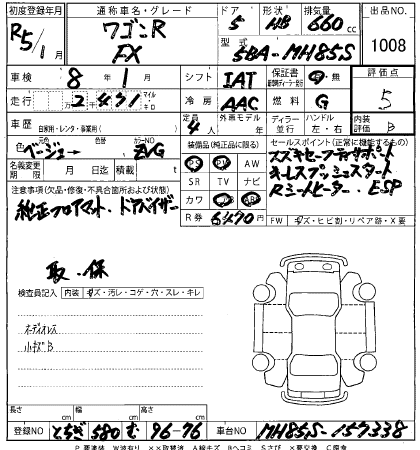 初度登録年月 通称車名・グレード ドア 形状 排気量 出品No.
R5/1月 ワゴンR FX 5 HB 660cc 1008
型式 5BA-MH85S
車検 8年1月 シフト IAT 保証書 有・無 評価点 5
走行 2431 マイル キロ 冷房 AAC 燃料 G
車歴 自家用・レンタ・事業用( ) 定員 4人 外車モデル 年 ディーラー 並行 ハンドル 左・右 内装評価 B
色 ベージュ 色替 カラーNo. ZVG 装備品(純正品に限る) セールスポイント(正常に機能するもの)
名義変更期限 月 日迄 積載 t PS PW AW スズキセーフティサポート
注意事項(欠品・修復・不具合箇所および状態) SR TV ナビ キーレスプッシュスタート
純正フロアマット、ドアバイザー カワ AB Rシートヒーター、ESP
R券 6470円 FW キズ・ヒビ割・リペア跡・X要
取・保
検査員記入 内装 キズ・汚レ・コゲ・穴・スレ・キレ
オーディオレス
小キズB
長さ cm 幅 cm 高さ cm
登録No. とちぎ 580 む 96-76 車台No. MH85S-157338
P要塗装 W波有り XX取替済 A線キズ Bヘコミ Sさび X要交換 C腐食